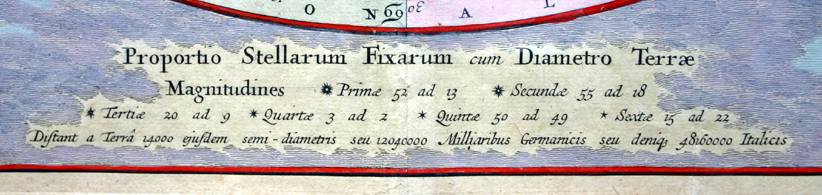 O N 69 30 A L
Proportio Stellarum Fixarum cum Diametro Terræ
Magnitudines Primæ 52 ad 13 Secundæ 55 ad 18
Tertiæ 20 ad 9 Quartæ 3 ad 2 Quintæ 50 ad 49 Sextæ 15 ad 22
Distant a Terrâ 14000 ejusdem semi-diametris seu 12040000 Milliaribus Germanicis seu deniq; 48160000 Italicis